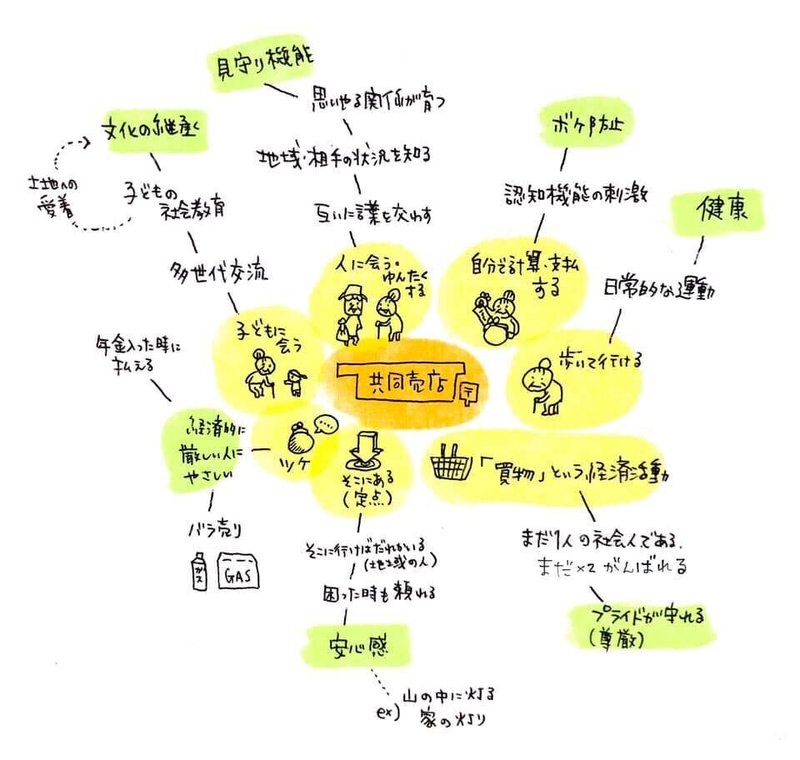 見守り機能
思いやる関係が育つ
地域・相手の状況を知る
互いに言葉を交わす
人に会う・
ゆんたく
する
文化の継承
土地への
愛着
子どもの
社会教育
多世代交流
子どもに
会う
ボケ防止
認知機能の刺激
自分で計算・支払
する
健康
日常的な運動
歩いて行ける
共同売店
〒
年金入った時に
払える
経済的に
厳しい人に
やさしい
ツケ
バラ売り
ガス
GAS
そこにある
(定点)
そこに行けばだれかいる
(地域の人)
困った時も頼れる
安心感
ex) 山の中に灯る
家の灯り
「買物」という経済活動
まだ1人の社会人である、
まだ××がんばれる
プライドが守れる
(尊厳)